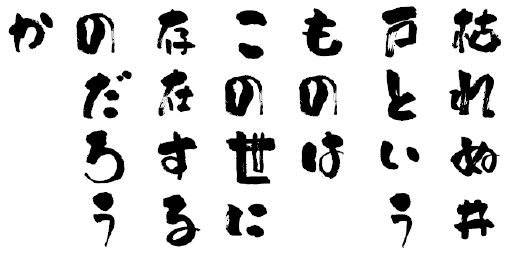 枯れぬ井
戸という
ものは
この世に
存在する
のだろう
か